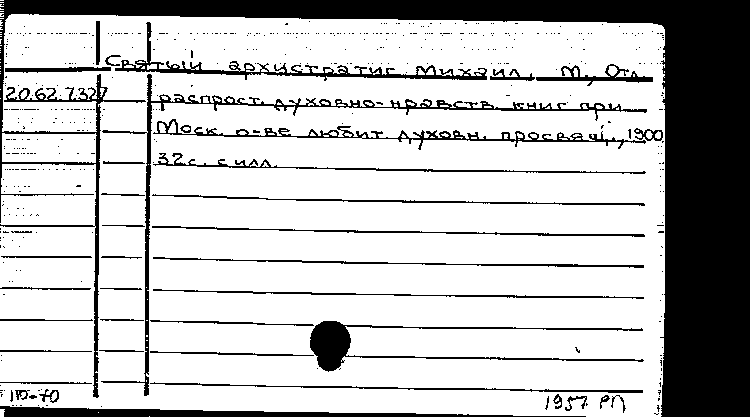 Святый архистратиг Михаил. М., Отд.
20.62.7.327 распрост. духовно-нравств. книг при
Моск. о-ве любит. духовн. просвещ., 1900
32 с. с илл.
1957 РП